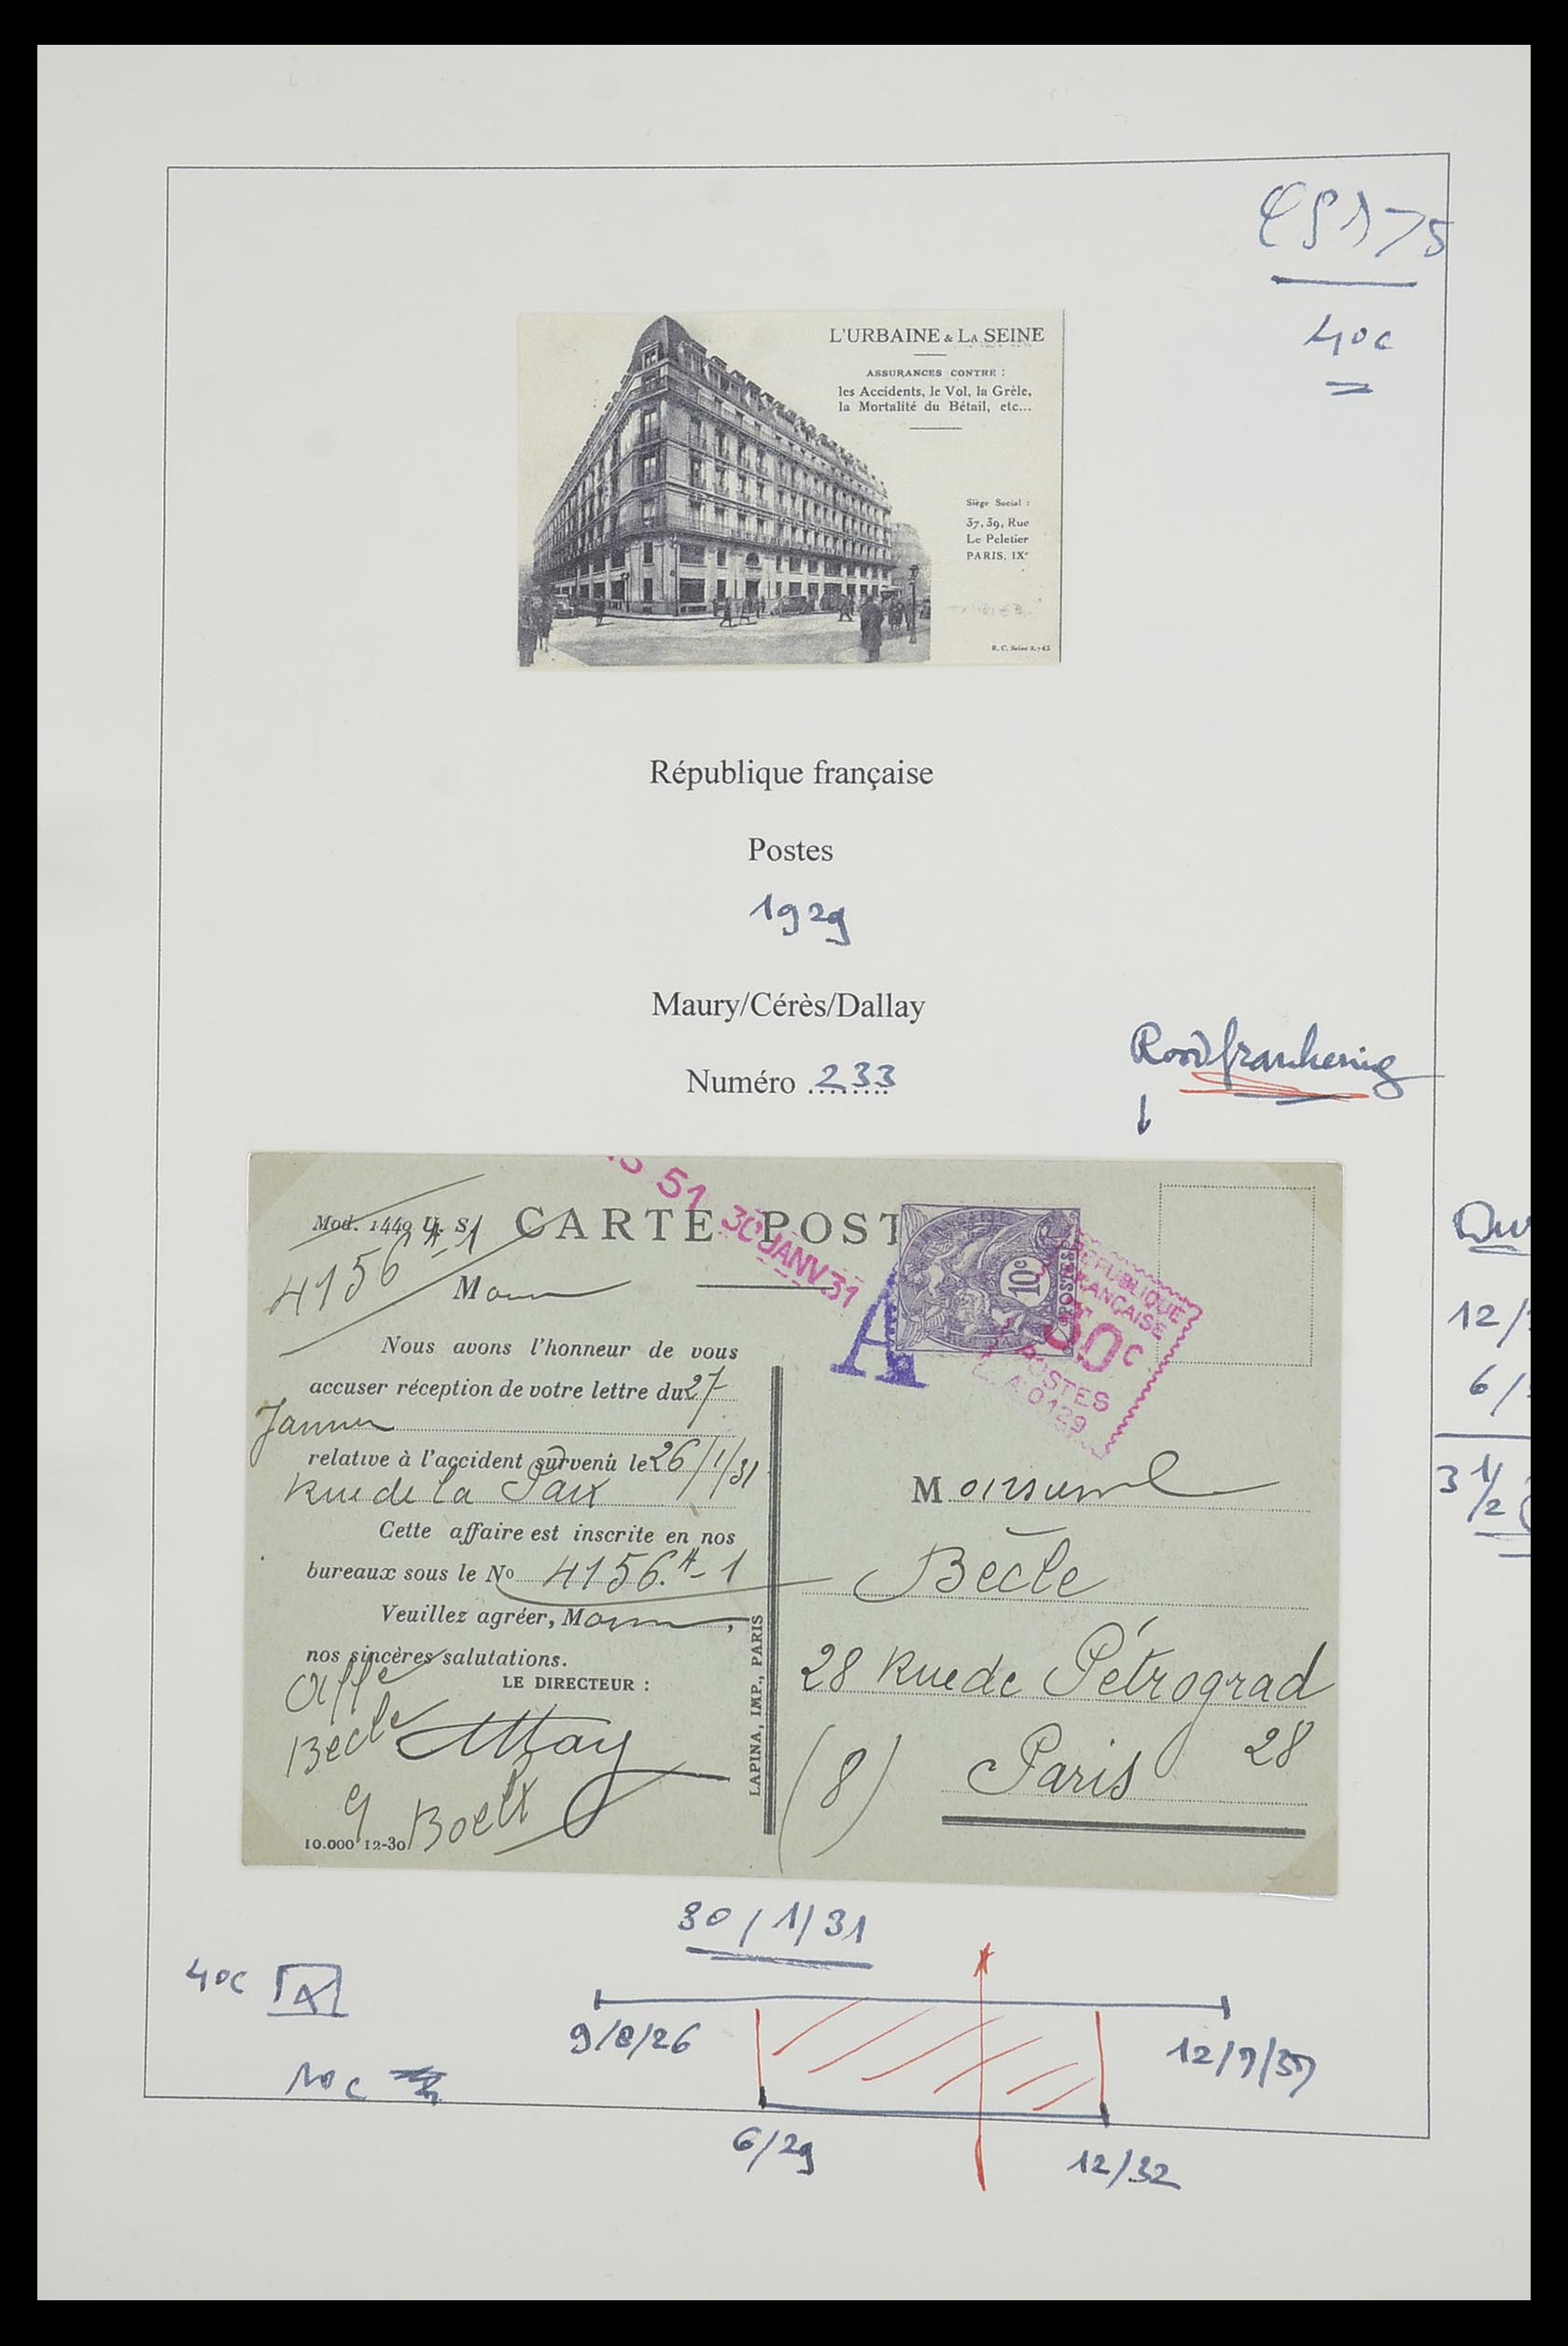 40c
L'URBAINE & LA SEINE
ASSURANCES CONTRE :
les Accidents, le Vol, la Grèle,
la Mortalité du Bétail, etc...
Siège Social :
37, 39, Rue
Le Peletier
PARIS. IXe
R. C. Seine
République française
Postes
1929
Maury/Cérès/Dallay
Numéro 233
Roodfrankering
51 30 JANV 31
Mod. 1449 U. S.
4156 A-1
CARTE POST
M
10c
POSTES
A
RÉPUBLIQUE
FRANÇAISE
50c
POSTES
A 0129
Nous avons l'honneur de vous
accuser réception de votre lettre du 27
Janvier
relative à l'accident survenu le 26/1/31
Rue de la Paix
Cette affaire est inscrite en nos
bureaux sous le No 4156.A-1
Veuillez agréer, M
nos sincères salutations.
LE DIRECTEUR :
Affe
Bècle
10.000 12-30
LAPINA, IMP., PARIS
Monsieur
Bècle
28 Rue de Pétrograd
28
(8) Paris
12/
6/
3 1/2
30/1/31
40c
9/8/26
12/7/37
10c
6/29
12/32